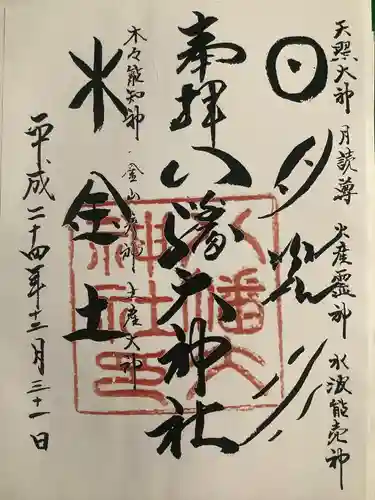 天照大神 月読尊 火産霊神 水波能売神
日月火水
奉拝 八幡大神社
木々能知神・金山彦神 土産大神
木金土
平成二十四年十二月三十一日
八幡大